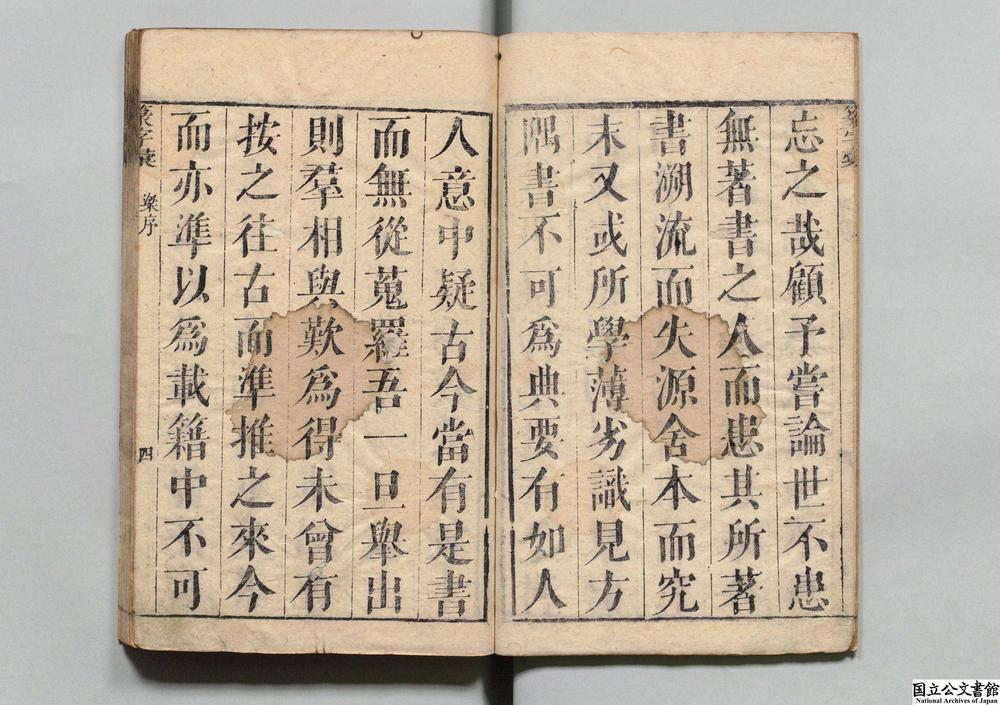 忘之哉顧予嘗論世不患
無著書之人而患其所著
書溯流而失源舍本而究
末又或所學薄劣識見方
隅書不可為典要有如人
人意中疑古今當有是書
而無從蒐羅吾一旦舉出
則羣相與歎為得未曾有
按之往古而準推之來今
而亦準以為載籍中不可
字彙
梁序
四
国立公文書館
National Archives of Japan